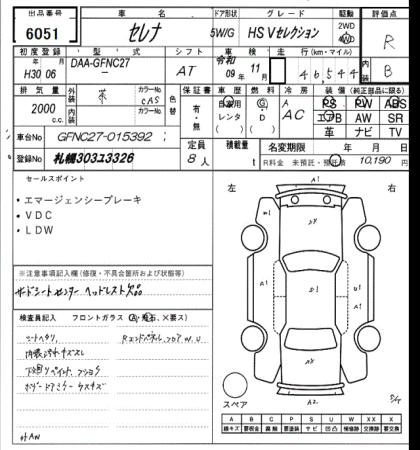 出品番号 車名 ドア形状 グレード 駆動 評価点
6051 セレナ 5W/G HS Vセレクション 2WD 4WD R
初度登録 型式 シフト 車検 走行 (km・マイル) 内装
年 月 DAA-GFNC27 令和 年 月
H30 06 － AT 09 11 46,544 B
排気量 外装 カラーNo 色替 保証書 車歴 燃料 冷房 装備 (純正部品に限る)
2000 c.c. 茶 CAS 有・無 自家用 レンタ G・D A AC PS PW ABS
内装 カラーNo エアB AW SR
革 ナビ TV
車台No GFNC27-015392 定員 積載量 名変期限 年 月 日
登録No 札幌303ﾐ3326 8人 t R料金 未預託・預託済 10,190 円
セールスポイント
・エマージェンシーブレーキ
・VDC
・LDW
※注意事項記入欄 (修復・不具合箇所および状態等)
サードシートセンターヘッドレスト欠品
検査員記入 フロントガラス (A, 飛石, X要ス)
シートヘタリ, RエンドパネルフロアW.U
内装汚れキズスレ
下廻りペイント, フショク
外AW
左 右
A1
W1
A1
U1
A1
A2
スペア
A B C P S U W XX X
線キズ 要板金 腐蝕 要塗装 サビ 凹凸 補修跡 交換跡 要交換